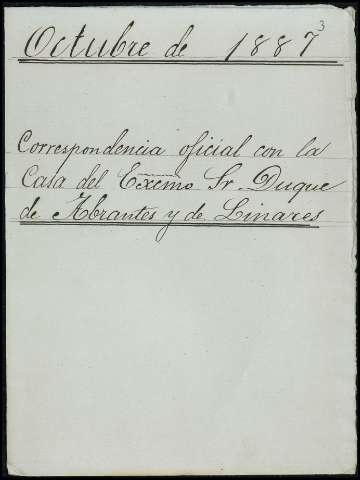 3
Octubre de 1887
Correspondencia oficial con la
Casa del Excmo Sr. Duque
de Abrantes y de Linares